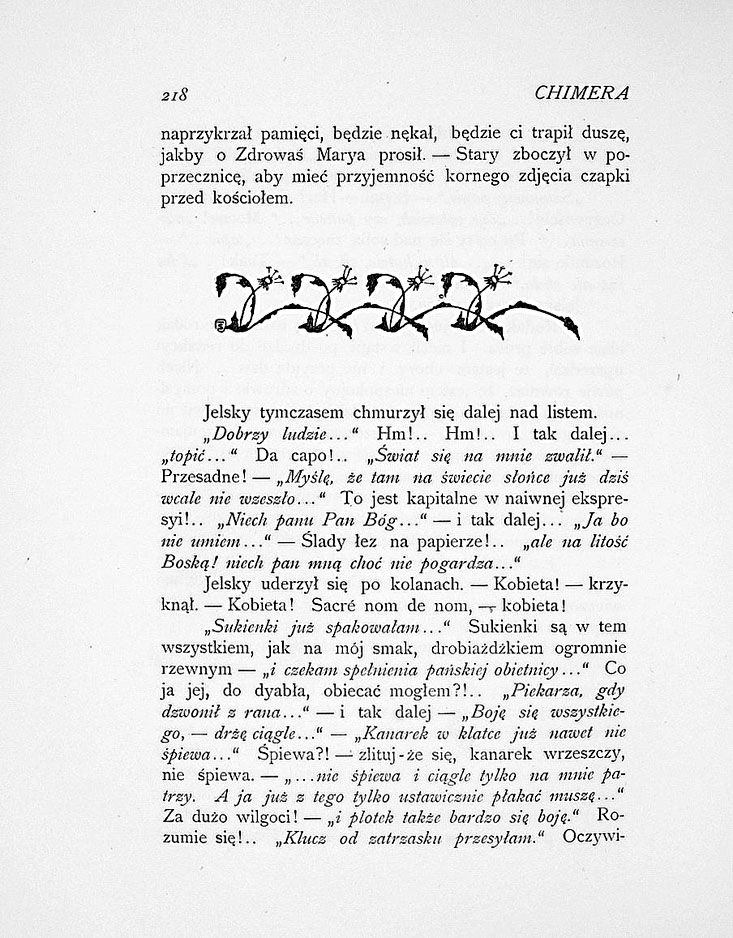 218 CHIMERA
naprzykrzał pamięci, będzie nękał, będzie ci trapił duszę,
jakby o Zdrowaś Marya prosił. — Stary zboczył w po-
przecznicę, aby mieć przyjemność kornego zdjęcia czapki
przed kościołem.
Jelsky tymczasem chmurzył się dalej nad listem.
„Dobrzy ludzie..." Hm!.. Hm!.. I tak dalej...
„topić..." Da capo!.. „Świat się na mnie zwalił." —
Przesadne! — „Myślę, że tam na świecie słońce już dziś
wcale nie wzeszło..." To jest kapitalne w naiwnej ekspre-
syi!.. „Niech panu Pan Bóg..." — i tak dalej... „Ja bo
nie umiem..." — Ślady łez na papierze!.. „ale na litość
Boską! niech pan mną choć nie pogardza..."
Jelsky uderzył się po kolanach. — Kobieta! — krzy-
knął. — Kobieta! Sacré nom de nom, — kobieta!
„Sukienki już spakowałam..." Sukienki są w tem
wszystkiem, jak na mój smak, drobiażdżkiem ogromnie
rzewnym — „i czekam spełnienia pańskiej obietnicy..." Co
ja jej, do dyabła, obiecać mogłem?!.. „Piekarza, gdy
dzwonił z rana..." — i tak dalej — „Boję się wszystkie-
go, — drżę ciągle..." — „Kanarek w klatce już nawet nie
śpiewa..." Śpiewa?! — zlituj-że się, kanarek wrzeszczy,
nie śpiewa. — „...nie śpiewa i ciągle tylko na mnie pa-
trzy. A ja już z tego tylko ustawicznie płakać muszę..."
Za dużo wilgoci! — „i plotek także bardzo się boję." Ro-
zumie się!.. „Klucz od zatrzasku przesyłam." Oczywi-